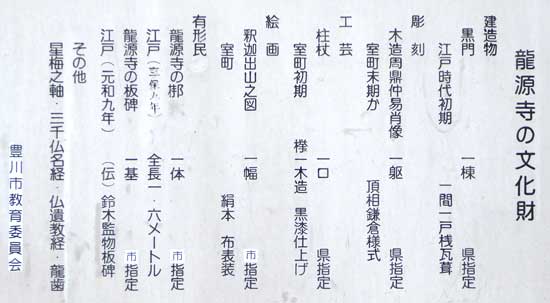 龍源寺の文化財
建造物
黒門 一棟 県指定
江戸時代初期 一間一戸桟瓦葺
彫刻
木造周鼎仲易肖像 一躯 県指定
室町末期か 頂相鎌倉様式
工芸
柱杖 一口 県指定
室町初期 欅一木造 黒漆仕上げ
絵画
釈迦出山之図 一幅 市指定
室町 絹本 布表装
有形民
龍源寺の梆 一体 市指定
江戸(享保九年) 全長一・六メートル
龍源寺の板碑 一基 市指定
江戸(元和九年) (伝)鈴木監物板碑
その他
星梅之軸・三千仏名経・仏遺教経・龍歯
豊川市教育委員会